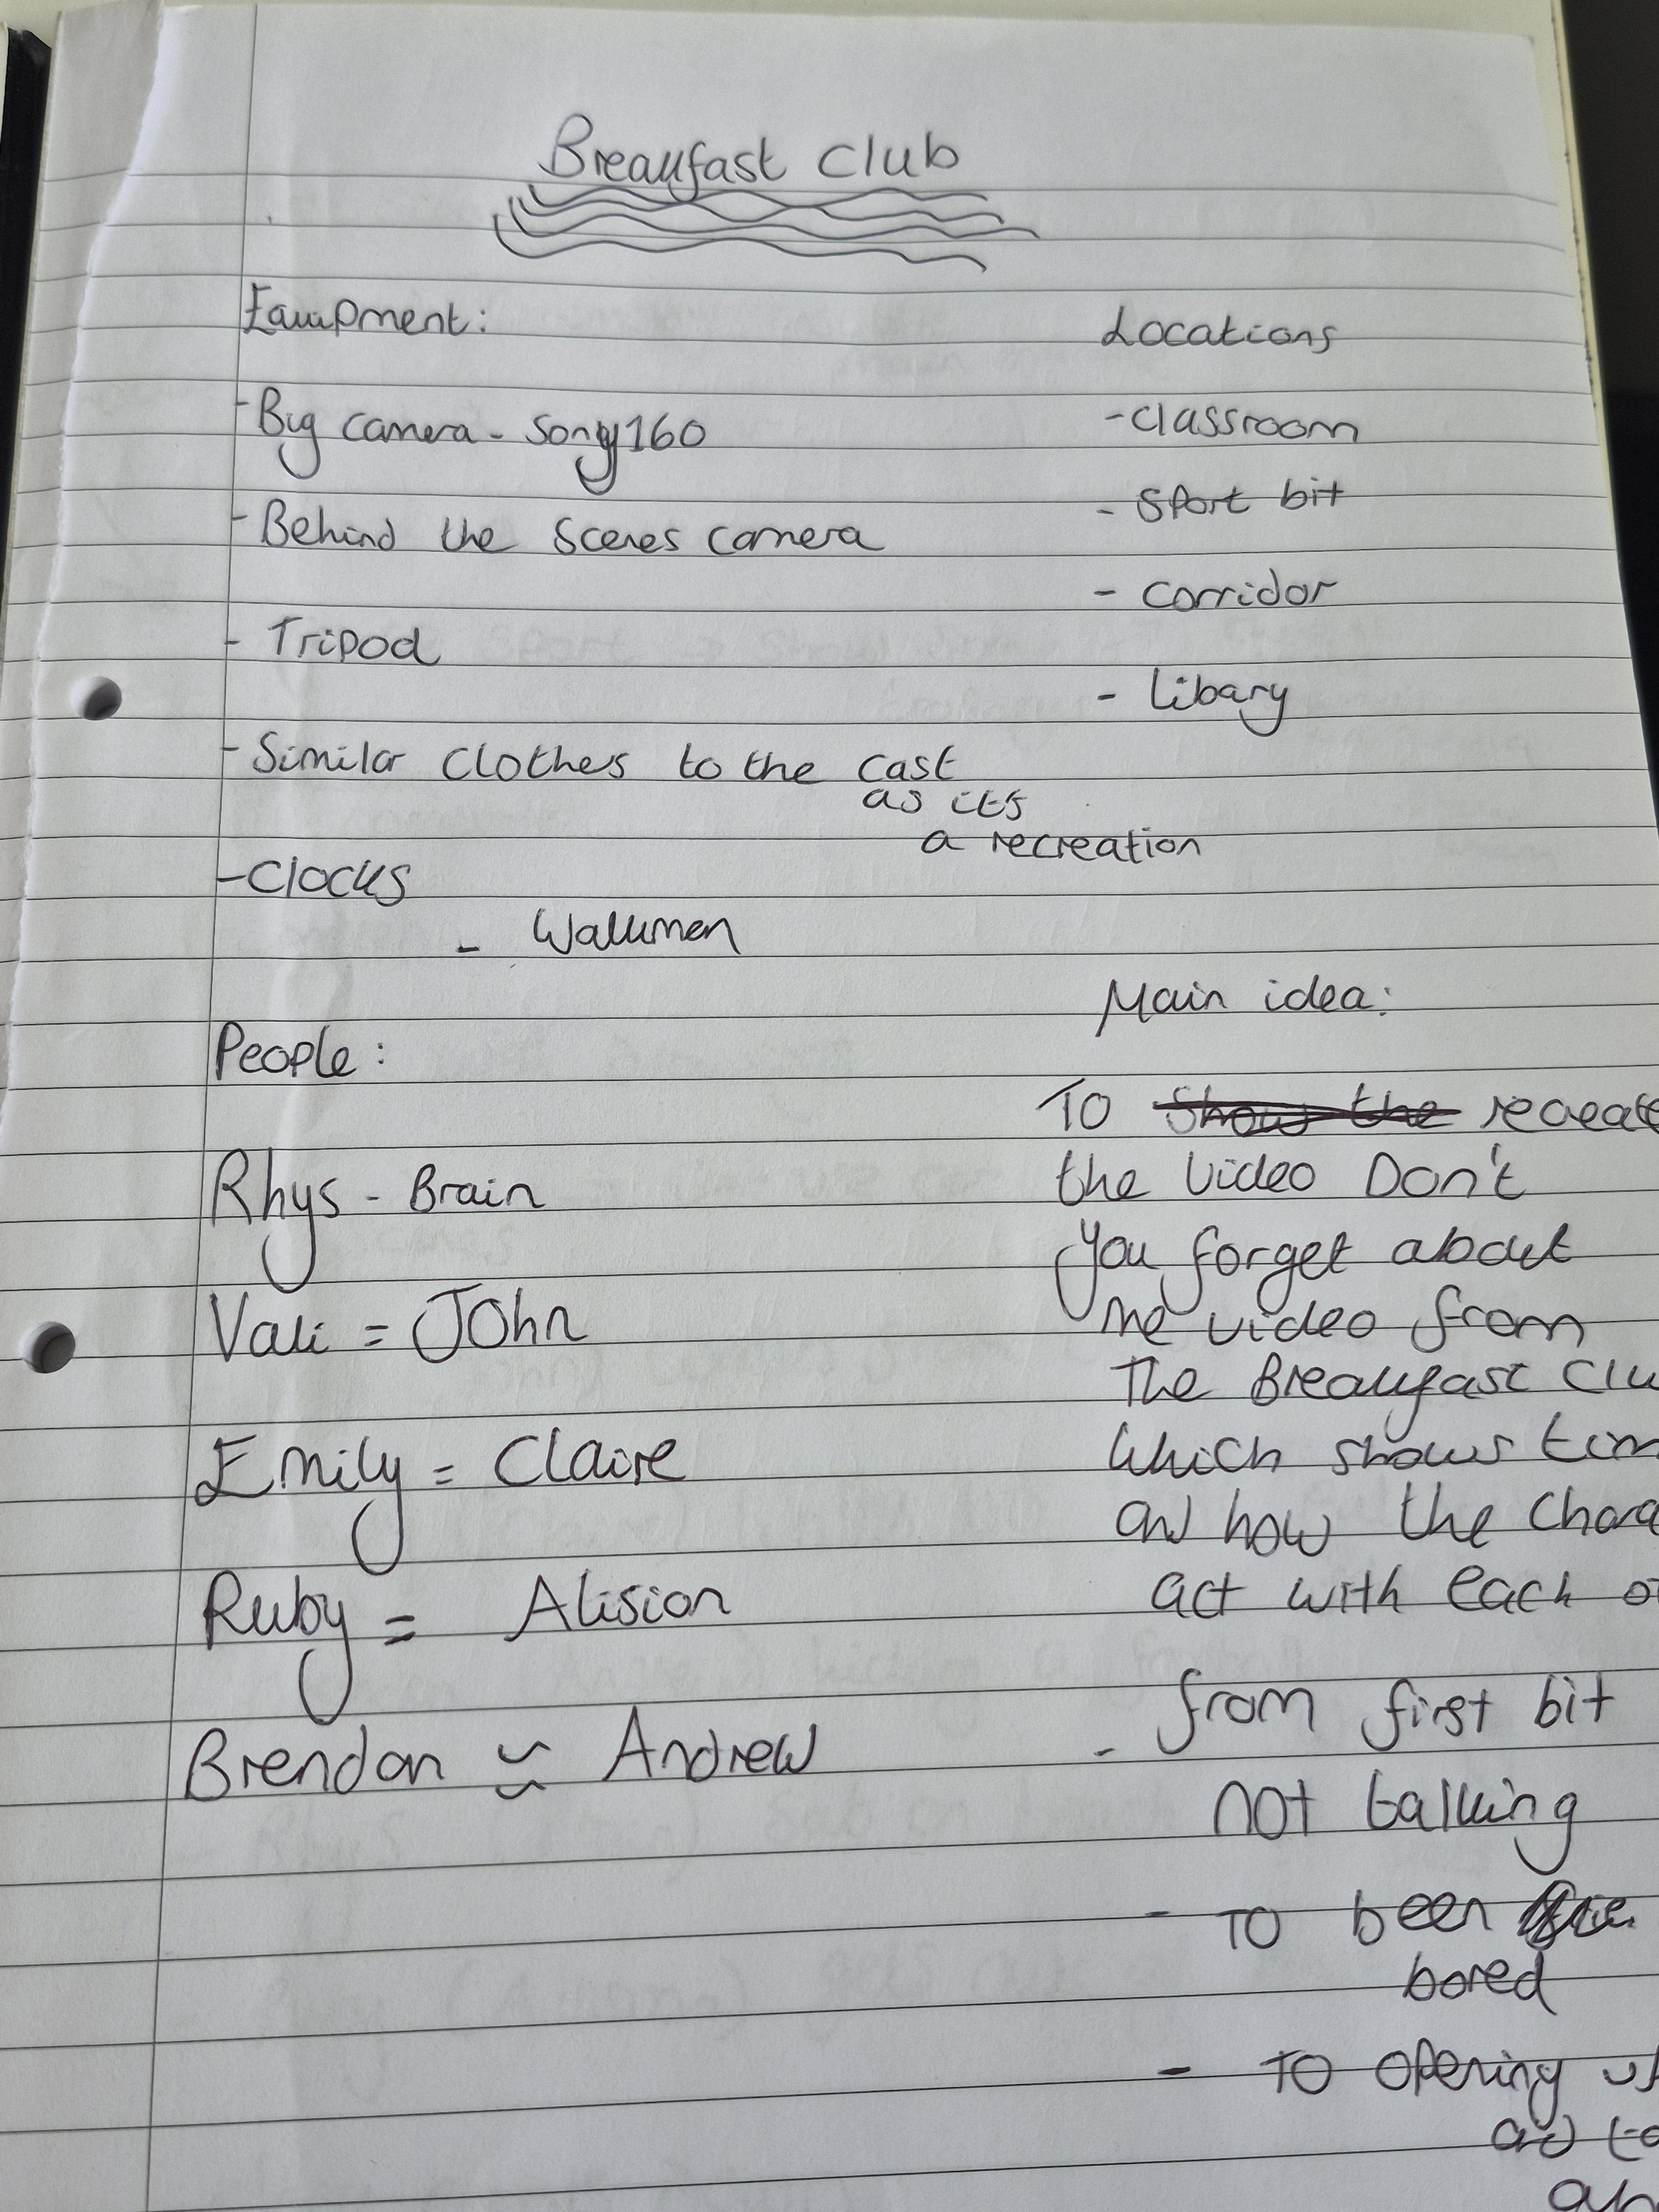 Breakfast Club
Equipment:
- Big camera - Sony 160
- Behind the scenes camera
- Tripod
- Similar clothes to the cast
as it's
a recreation
- Clocks
- Walkmen
Locations
- classroom
- Sport bit
- corridor
- Libary
People:
Rhys - Brain
Vali = John
Emily = Claire
Ruby = Alision
Brendon = Andrew
Main idea:
To show the recreate
the video Don't
you forget about
me video from
The Breakfast Clu
which shows tim
and how the chara
act with each o
- from first bit
not talking
- To been
bored
- To opening u